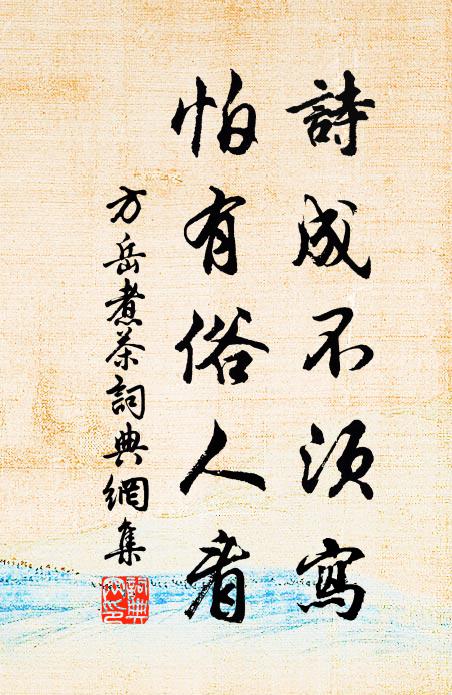 詩成不須寫
怕有俗人看
方岳煮茶詞典網集